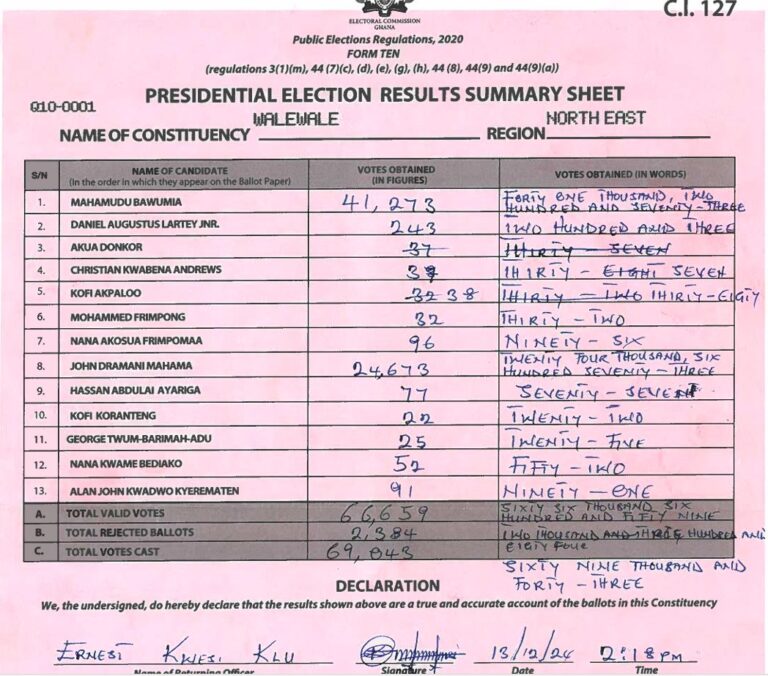 C.I. 127
ELECTORAL COMMISSION
GHANA
Public Elections Regulations, 2020
FORM TEN
(regulations 3(1)(m), 44 (7)(c), (d), (e), (g), (h), 44 (8), 44(9) and 44(9)(a))
PRESIDENTIAL ELECTION RESULTS SUMMARY SHEET
Q10-0001
NAME OF CONSTITUENCY WALEWALE REGION NORTH EAST
S/N NAME OF CANDIDATE (In the order in which they appear on the Ballot Paper) VOTES OBTAINED (IN FIGURES) VOTES OBTAINED (IN WORDS)
1. MAHAMUDU BAWUMIA 41,273 FORTY ONE THOUSAND, TWO HUNDRED AND SEVENTY-THREE
2. DANIEL AUGUSTUS LARTEY JNR. 243 TWO HUNDRED AND THREE
3. AKUA DONKOR 37 THIRTY-SEVEN
4. CHRISTIAN KWABENA ANDREWS 37 THIRTY-EIGHT SEVEN
5. KOFI AKPALOO 32 38 THIRTY-TWO THIRTY-EIGTY
6. MOHAMMED FRIMPONG 32 THIRTY-TWO
7. NANA AKOSUA FRIMPOMAA 96 NINETY-SIX
8. JOHN DRAMANI MAHAMA 24,673 TWENTY FOUR THOUSAND, SIX HUNDRED SEVENTY-THREE
9. HASSAN ABDULAI AYARIGA 77 SEVENTY-SEVEN
10. KOFI KORANTENG 22 TWENTY-TWO
11. GEORGE TWUM-BARIMAH-ADU 25 TWENTY-FIVE
12. NANA KWAME BEDIAKO 52 FIFTY-TWO
13. ALAN JOHN KWADWO KYEREMATEN 91 NINETY-ONE
A. TOTAL VALID VOTES 66,659 SIXTY SIX THOUSAND SIX HUNDRED AND FIFTY NINE
B. TOTAL REJECTED BALLOTS 2,384 TWO THOUSAND AND THREE HUNDRED AND EIGTY FOUR
C. TOTAL VOTES CAST 69,043 SIXTY NINE THOUSAND AND FORTY-THREE
DECLARATION
We, the undersigned, do hereby declare that the results shown above are a true and accurate account of the ballots in this Constituency
ERNEST KWESI KLU 13/12/24 2:18PM
Name of Returning Officer Signature Date Time